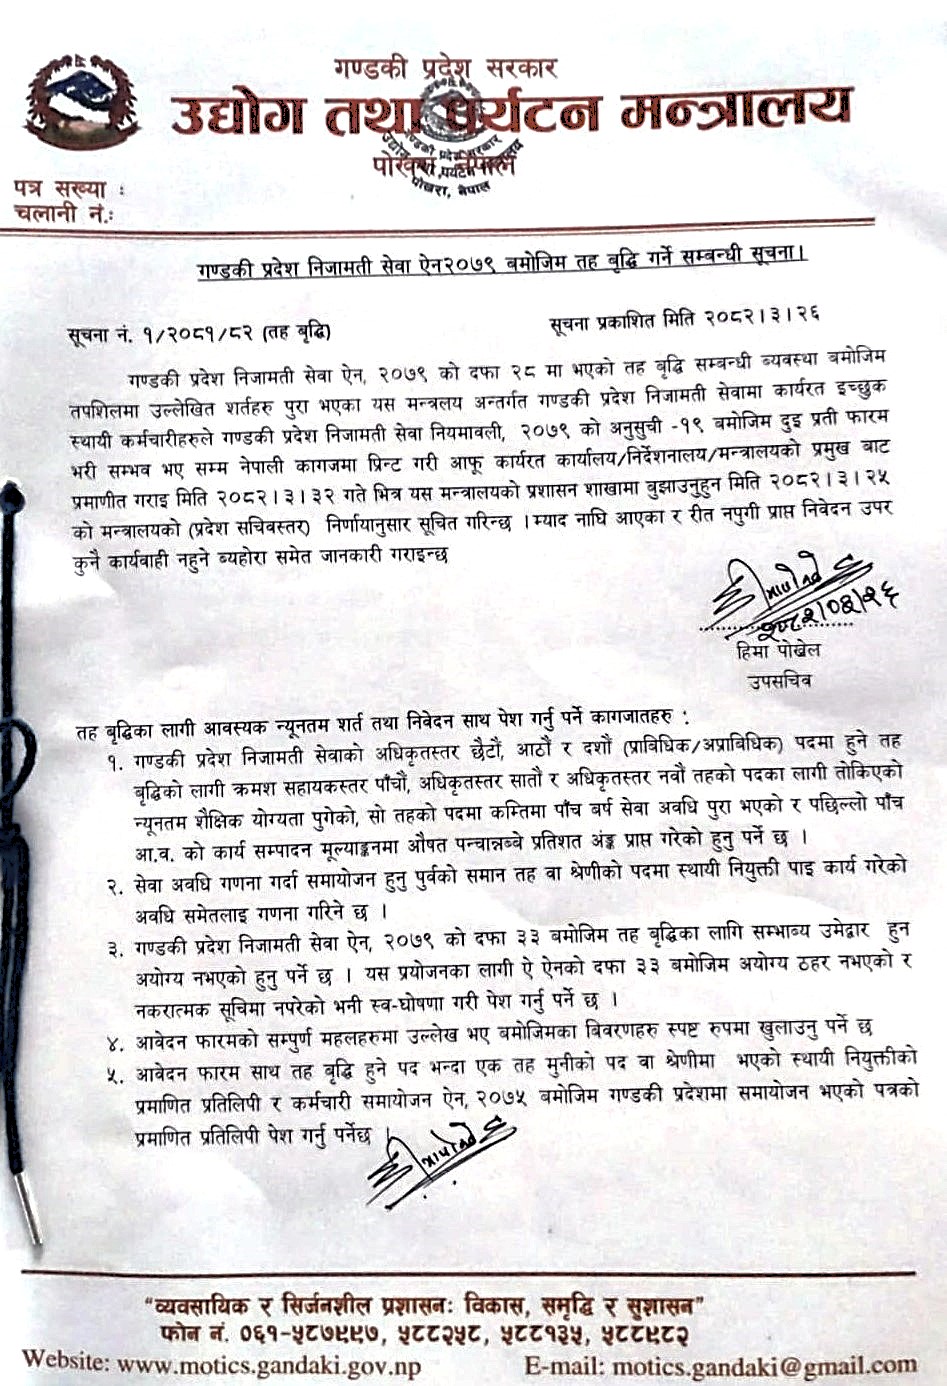 गण्डकी प्रदेश सरकार
उद्योग तथा पर्यटन मन्त्रालय
पोखरा, नेपाल
पत्र सख्या :
चलानी नं.:
गण्डकी प्रदेश निजामती सेवा ऐन२०७९ बमोजिम तह बृद्धि गर्ने सम्बन्धी सूचना।
सूचना नं. १/२०८१/८२ (तह बृद्धि)
सूचना प्रकाशित मिति २०८२।३।२६
गण्डकी प्रदेश निजामती सेवा ऐन, २०७९ को दफा २८ मा भएको तह बृद्धि सम्बन्धी ब्यवस्था बमोजिम
तपशिलमा उल्लेखित शर्तहरु पुरा भएका यस मन्त्रलय अन्तर्गत गण्डकी प्रदेश निजामती सेवामा कार्यरत इच्छुक
स्थायी कर्मचारीहरुले गण्डकी प्रदेश निजामती सेवा नियमावली, २०७९ को अनुसुची -१९ बमोजिम दुइ प्रती फारम
भरी सम्भव भए सम्म नेपाली कागजमा प्रिन्ट गरी आफू कार्यरत कार्यालय/निर्देशनालय/मन्त्रालयको प्रमुख बाट
प्रमाणीत गराइ मिति २०८२।३।३२ गते भित्र यस मन्त्रालयको प्रशासन शाखामा बुझाउनुहुन मिति २०८२।३।२५
को मन्त्रालयको (प्रदेश सचिवस्तर) निर्णयानुसार सूचित गरिन्छ ।म्याद नाघि आएका र रीत नपुगी प्राप्त निवेदन उपर
कुनै कार्यवाही नहुने ब्यहोरा समेत जानकारी गराइन्छ
२०८२/०३/२६
हिमा पोखेल
उपसचिव
तह बृद्धिका लागी आवस्यक न्यूनतम शर्त तथा निवेदन साथ पेश गर्नु पर्ने कागजातहरु :
१. गण्डकी प्रदेश निजामती सेवाको अधिकृतस्तर छैटौं, आठौं र दशौं (प्राविधिक/अप्राविधिक) पदमा हुने तह
बृद्धिको लागी क्रमश सहायकस्तर पाँचौं, अधिकृतस्तर सातौं र अधिकृतस्तर नवौं तहको पदका लागी तोकिएको
न्यूनतम शैक्षिक योग्यता पुगेको, सो तहको पदमा कम्तिमा पाँच बर्ष सेवा अवधि पुरा भएको र पछिल्लो पाँच
आ.व. को कार्य सम्पादन मूल्याङ्कनमा औषत पन्चान्नब्बे प्रतिशत अंङ्क प्राप्त गरेको हुनु पर्ने छ ।
२. सेवा अवधि गणना गर्दा समायोजन हुनु पुर्वको समान तह वा श्रेणीको पदमा स्थायी नियुक्ती पाइ कार्य गरेको
अवधि समेतलाइ गणना गरिने छ ।
३. गण्डकी प्रदेश निजामती सेवा ऐन, २०७९ को दफा ३३ बमोजिम तह बृद्धिका लागि सम्भाब्य उमेद्वार हुन
अयोग्य नभएको हुनु पर्ने छ । यस प्रयोजनका लागी ऐ ऐनको दफा ३३ बमोजिम अयोग्य ठहर नभएको र
नकरात्मक सूचिमा नपरेको भनी स्व-घोषणा गरी पेश गर्नु पर्ने छ ।
४. आवेदन फारमको सम्पुर्ण महलहरुमा उल्लेख भए बमोजिमका बिवरणहरु स्पष्ट रुपमा खुलाउनु पर्ने छ
५. आवेदन फारम साथ तह बृद्धि हुने पद भन्दा एक तह मुनीको पद वा श्रेणीमा भएको स्थायी नियुक्तीको
प्रमाणित प्रतिलिपी र कर्मचारी समायोजन ऐन, २०७५ बमोजिम गण्डकी प्रदेशमा समायोजन भएको पत्रको
प्रमाणित प्रतिलिपी पेश गर्नु पर्नेछ ।
"व्यवसायिक र सिर्जनशील प्रशासन: विकास, समृद्धि र सुशासन"
फोन नं. ०६१-५८७९९७, ५८८२५८, ५८८१३५, ५८८९८२
Website: www.motics.gandaki.gov.np
E-mail: motics.gandaki@gmail.com